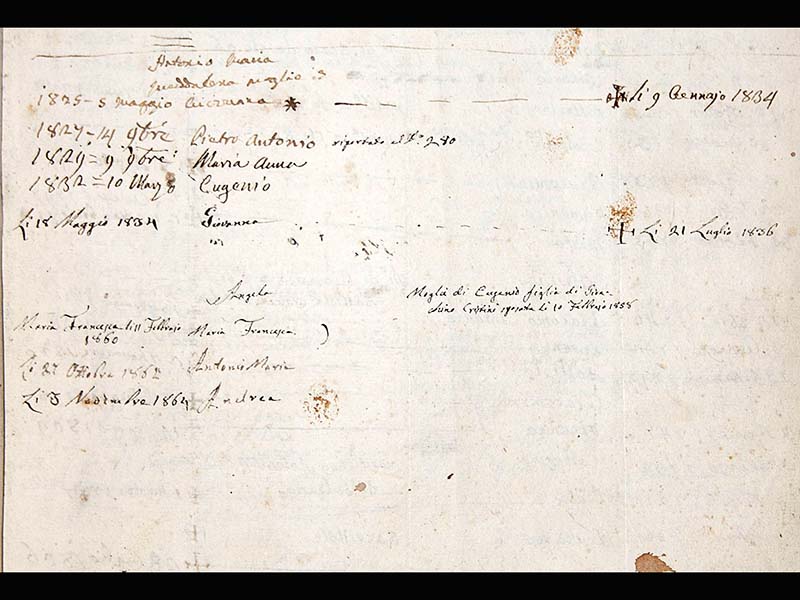 Antonio Maria
Maddalena moglie
1825 - 8 Maggio Giovanna * — — — — Li 9 Gennajo 1834
1827 - 14 9bre Pietro Antonio riportato al N.° 280
1829 = 9 9bre Maria Anna
1832 = 10 Marzo Eugenio
Li 18 Maggio 1834 Giovanna + Li 21 Luglio 1836
Angela Moglie di Eugenio figlia di Gioa-
chino Cristini sposata li 10 Febbrajo 1858
Maria Francesca li 11 Febbrajo Maria Francesca )
1860
Li 27 Ottobre 1862 Antonio Maria
Li 3 Novembre 1864 Andrea